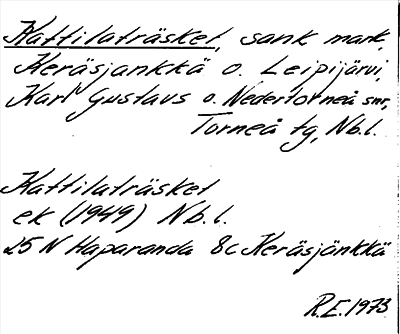 Kattilaträsket, sank mark,
Keräsjänkkä o. Leipijärvi,
Karl Gustavs o. Nedertorneå snr,
Torneå tg, Nb.l.
Kattilaträsket
ek (1949) Nb.l.
25 N Haparanda 8c Keräsjänkkä
R.E. 1973